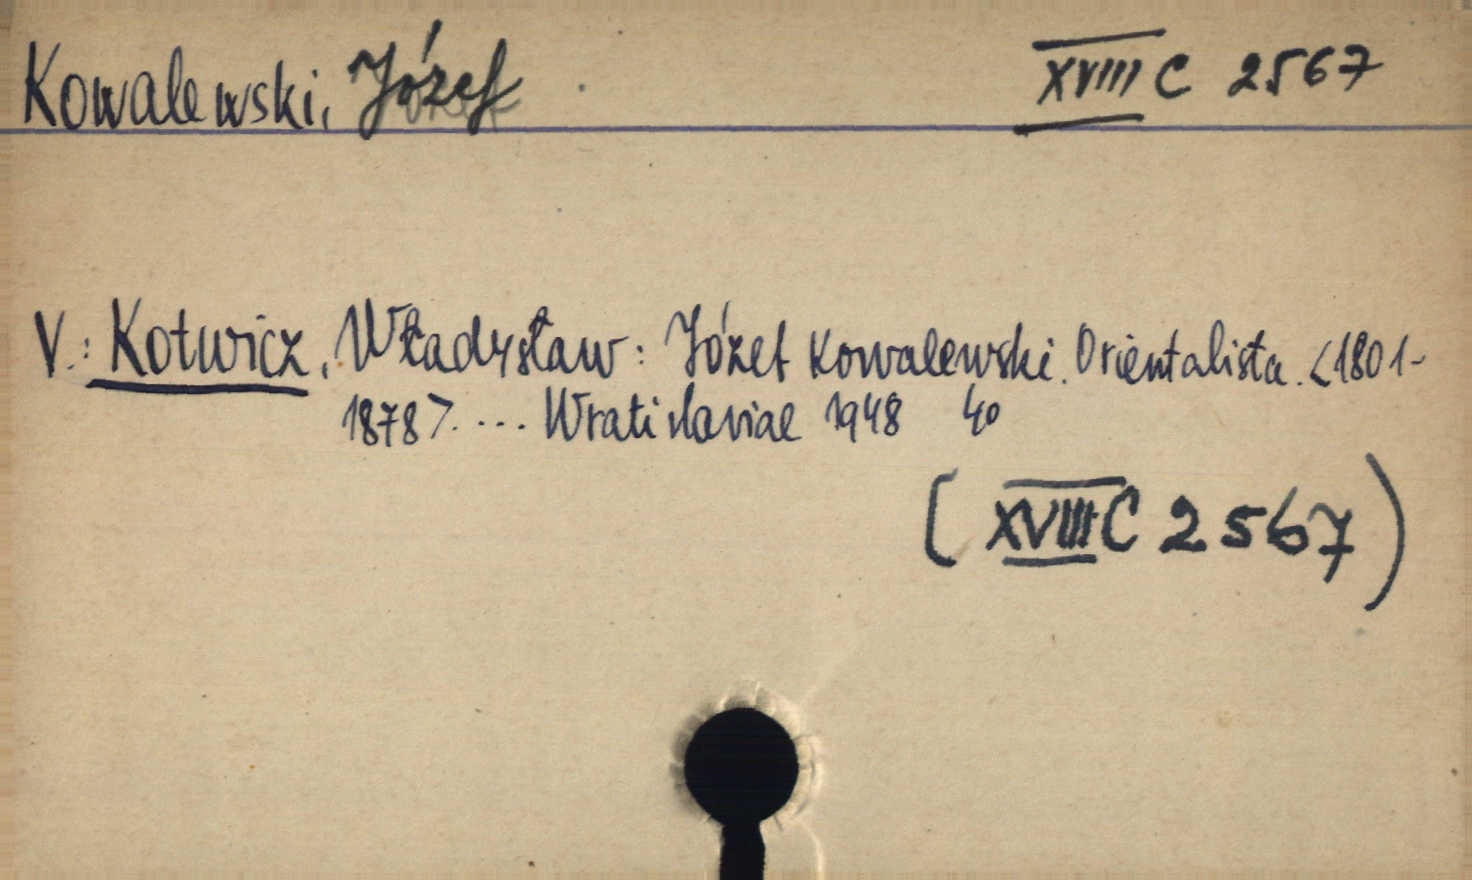 Kowalewski, Józef. XVIII C 2567
V.: Kotwicz, Władysław: Józef Kowalewski. Orientalista. <1801-
1878>. ... Wratislaviae 1948 40
(XVIII C 2567)